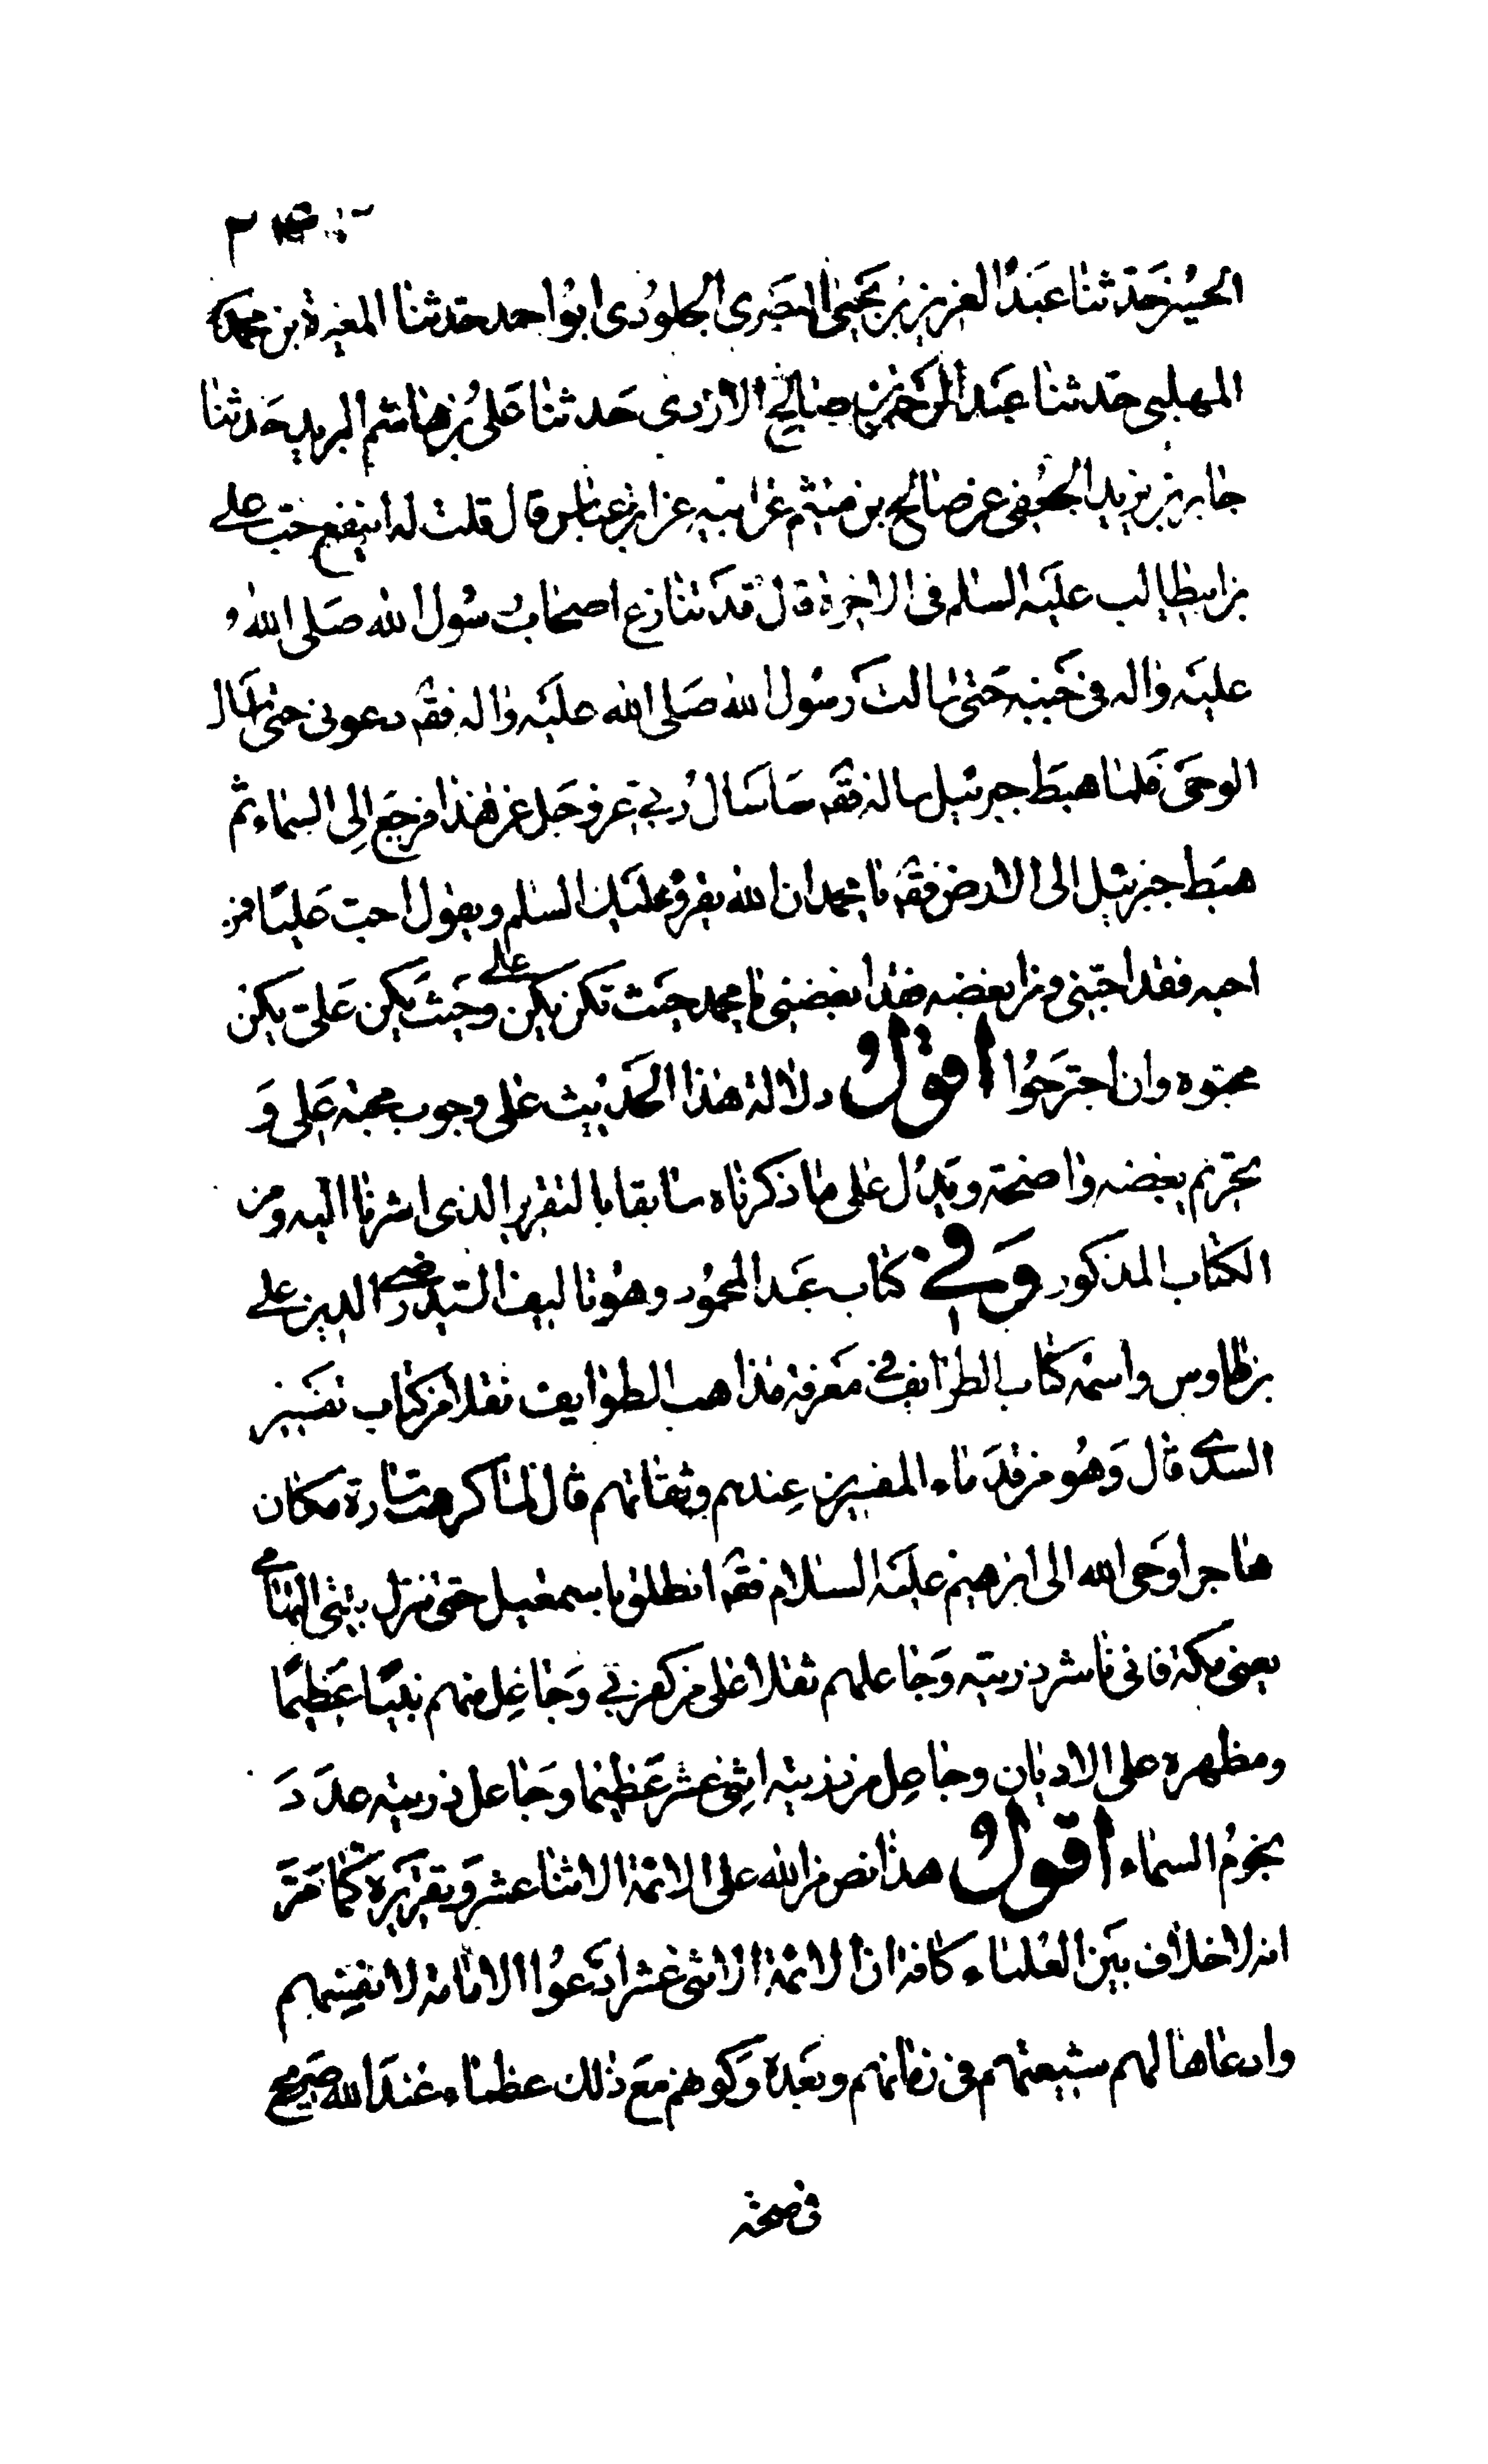 الحسين حدثنا عبد العزيز بن يحيى البصرى الجلودى ابو احمد حدثنا المغيرة بن محمد
المهلبى حدثنا عبد الرحمن بن صالح الازدى حدثنا على بن هاشم البريد حدثنا
جابر بن يزيد الجعفى عن صالح بن ميثم عن ابيه عن ابن عباس قال قلت له اينفع حب على
بن ابيطالب عليه السلم فى الاخرة قال قد تنازع اصحاب رسول الله صلى الله
عليه واله فى حبه حتى سالت رسول الله صلى الله عليه واله فقه دعونى حتى اسال
الوحى فلما هبط جبرئيل ساله فقه ساسال ربى عز وجل عن هذا فرجع الى السماء ثم
هبط جبرئيل الى الارض فقه يا محمد ان الله يقرؤ عليك السلم ويقول احب عليا فمن
احبه فقد احبنى ومن ابغضه فقد ابغضنى يا محمد حيث تكن يكن على وحيث يكن على يكن
محبوه وان اجترحوا اقول دلالة هذا الحديث على وجوب محبة على و
تحريم بغضه واضحة ويدل على ما ذكرناه سابقا بالتقرير الذى اشرنا اليه ومن
الكتاب المذكور وفى كتاب عبد المحمود وهو تاليف السيد رضى الدين على
بن طاوس واسمه كتاب الطرايف فى معرفة مذاهب الطوايف نقلا من كتاب تفسير
السدى قال وهو من قدماء المفسرين عندهم وثقاتهم قال لما كرهت سارة مكان
هاجر اوحى الله الى ابرهيم عليه السلام فقه انطلق باسمعيل حتى تنزل بيتى التهامى
يعنى مكة فانى ناشر ذريته وجاعلهم ثقلا على من كفر بى وجاعل منهم نبيا عظيما
ومظهره على الاديان وجاعل من ذريته اثنى عشر عظيما وجاعل ذريته عدد
نجوم السماء اقول هذا نص من الله على الائمة الاثنا عشر وتقريره كما مر
انه لا خلاف بين العلماء كافة ان الائمة الاثنى عشر ادعوا الامامة لانفسهم
وادعاها لهم شيعتهم فى زمانهم وبعده وكونهم مع ذلك عظماء عند الله صريح
فى صحة